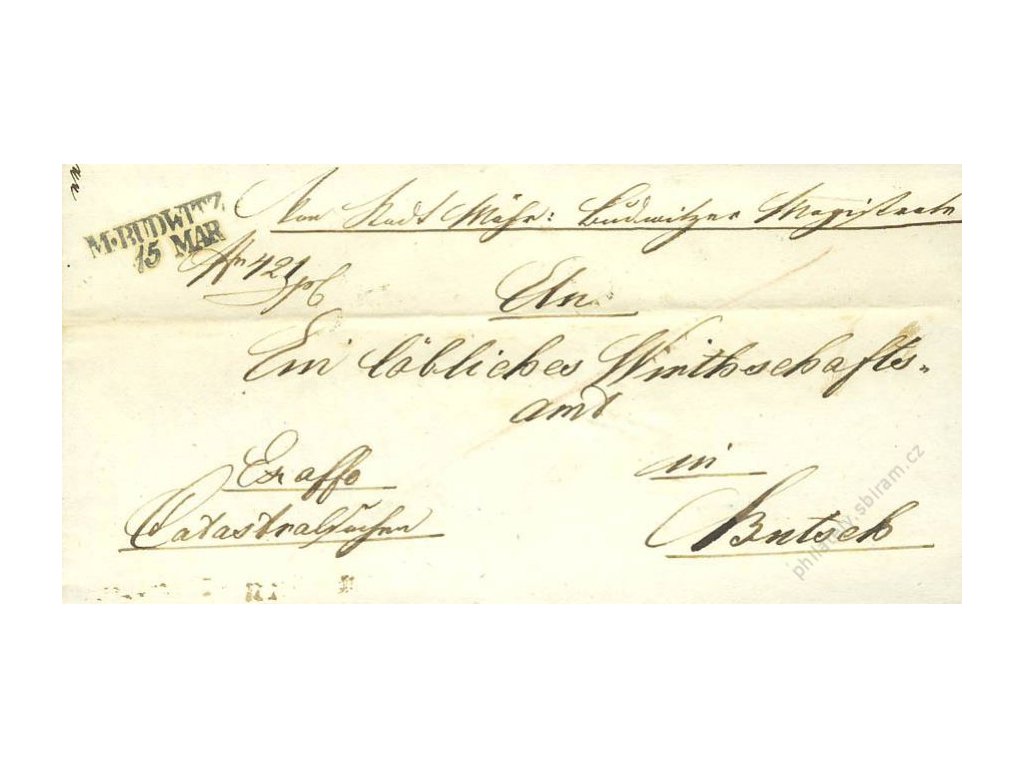 M. BUDWITZ
15 MAR
Von Stadt Mähr: Budwitzer Magistrate
No 421
An
Ein löbliches Wirthschafts„
amt
Ex affo
in
Catastralsachen
Butsch
philatelly.sbiram.cz